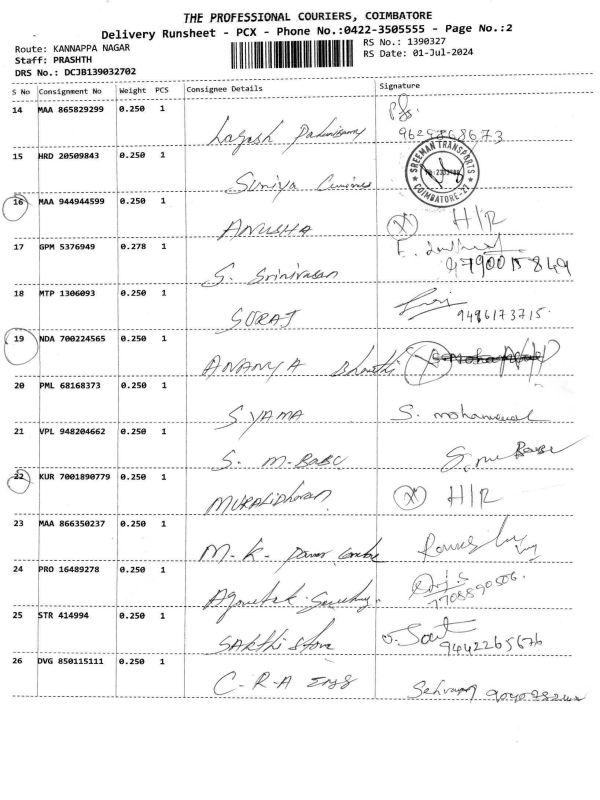 THE PROFESSIONAL COURIERS, COIMBATORE
Delivery Runsheet - PCX - Phone No.:0422-3505555 - Page No.:2
Route: KANNAPPA NAGAR
RS No.: 1390327
Staff: PRASHTH
RS Date: 01-Jul-2024
DRS No.: DCJB139032702
S No Consignment No Weight PCS Consignee Details Signature
14 MAA 865829299 0.250 1
15 HRD 20509843 0.250 1 Suniya
SREEMAN TRANSPORTS
COIMBATORE-21
16 MAA 944944599 0.250 1 ANUSHA H/R
17 GPM 5376949 0.278 1 S. Srinivasan
18 MTP 1306093 0.250 1 SURAJ 9486173715.
19 NDA 700224565 0.250 1 ANANYA Bharathi
20 PML 68168373 0.250 1 SYAMA S.
21 VPL 948204662 0.250 1 S. M. BABU
22 KUR 7001890779 0.250 1 MURALIDharan H/R
23 MAA 866350237 0.250 1 M-K- Power
24 PRO 16489278 0.250 1 7708890506.
25 STR 414994 0.250 1 SAKTHI Store 9442265676
26 DVG 850115111 0.250 1 C-R-A ENGG